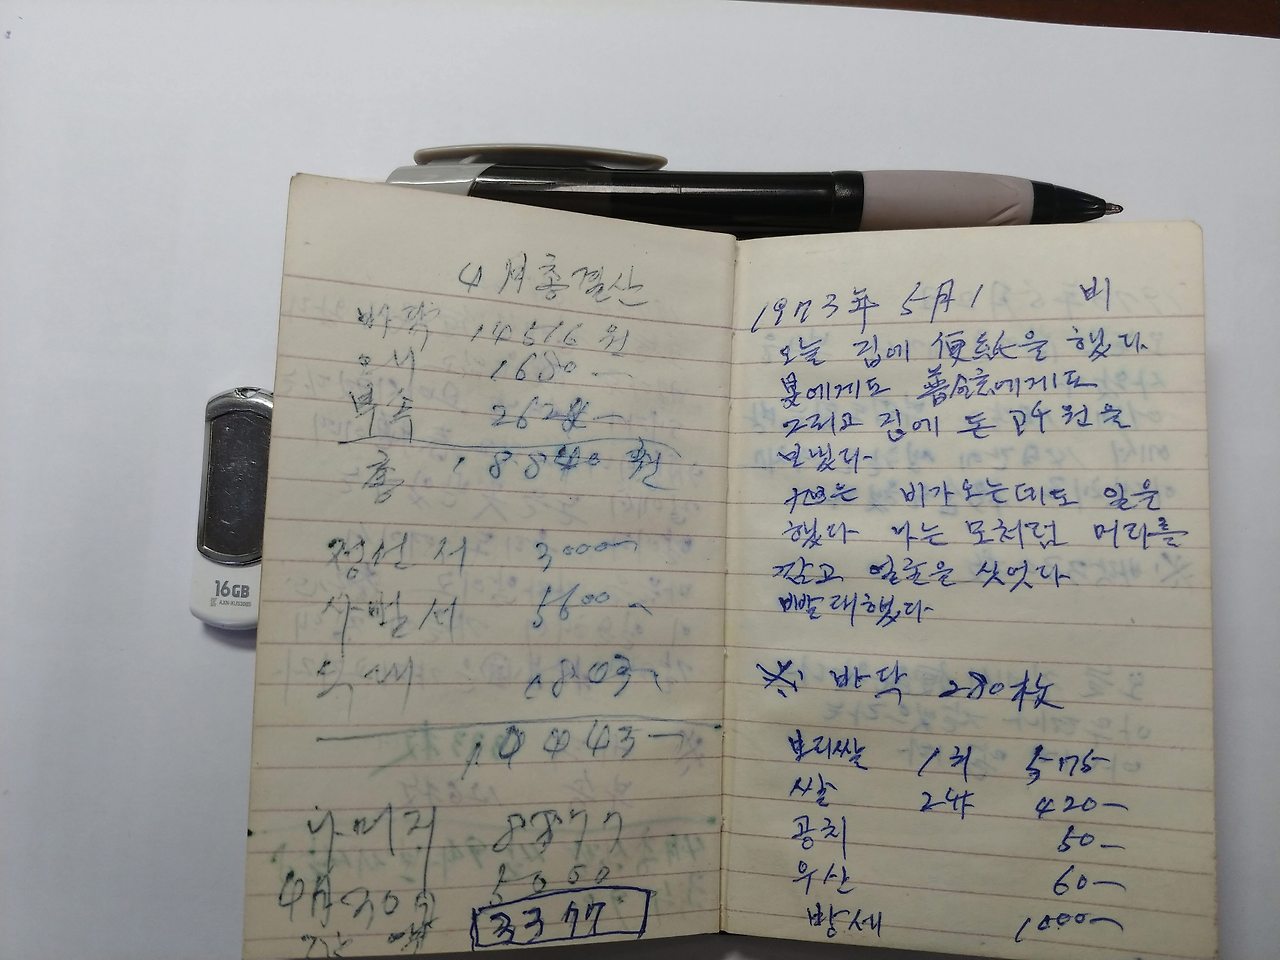 4月총결산
바닥 14516원
1680-
부속 2624-
총 18840원
정선서 3000-
사받서 5600-
1803-
14443-
나머지 8877
4月30日 5050
3377
1973年 5月1 비
오늘 집에 便紙을 했다.
에게도 에게도
그리고 집에 돈 원을
보냈다
는 비가오는데도 일을
했다 나는 모처럼 머리를
깜고 얼골을 씻었다
빨래했다
※ 바닥 280枚
보리쌀 1되 575-
쌀 2 420-
공치 50-
우산 60-
방세 1000-
16GB